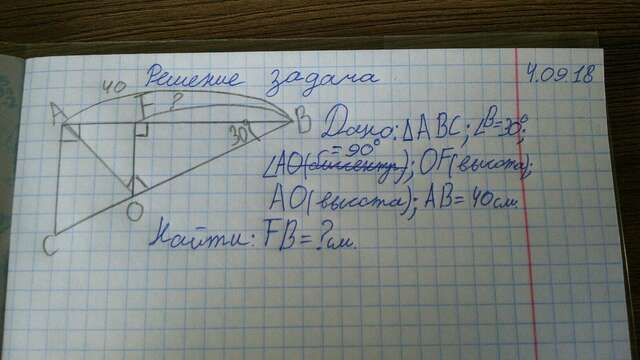 Решение задача 4.09.18
40
A F ? B
30°
O
C
Дано: ΔABC; ∠B=30°;
∠A =90°; OF(высота);
AO(высота); AB=40см.
Найти: FB=?см.